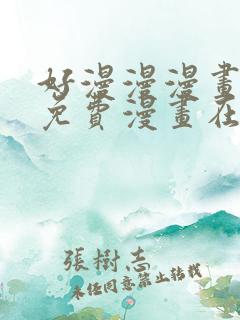 好漫漫漫畫
免費漫畫在
張樹志
未經同意禁止轉載